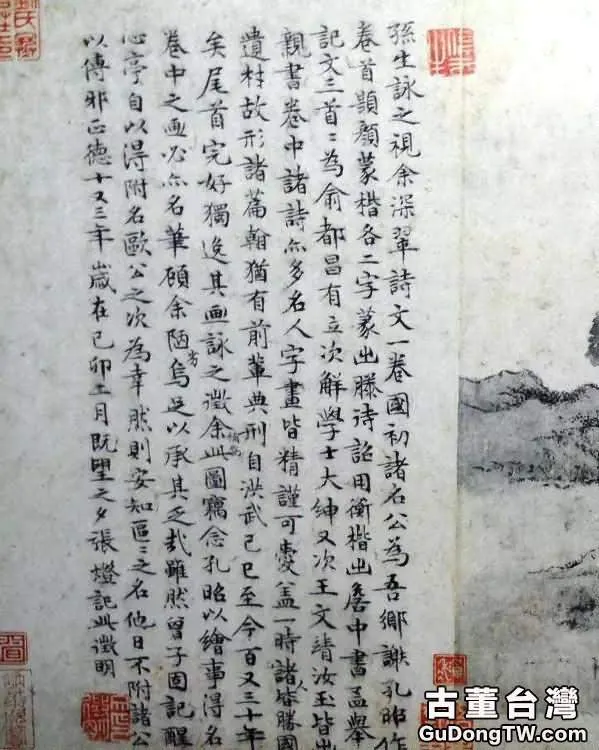 孫生詠之視余深翠詩文一卷國初諸名公為吾鄉謝孔昭作
卷首題顏蒙楷各二字蒙出滕待詔用衡楷出詹中書孟舉
記文三首〻為俞都昌有立次解學士大紳又次王文靖汝玉皆出
親書卷中諸詩亦多名人字畫皆精謹可愛蓋一時諸人皆勝國
遺材故形諸篇翰猶有前輩典刑自洪武己巳至今百又三十年
矣尾首完好獨逸其画詠之徵余補為此圖竊念孔昭以繪事得名
卷中之画必亦名筆碩余陋劣烏足以承其乏哉雖然曾子固記醒
心亭自以得附名歐公之次為幸然則安知區〻之名他日不附諸公
以傳邪正德十又三年歲在己卯十二月既望之夕張燈記此徵明
古董台灣
GuDongTW.com